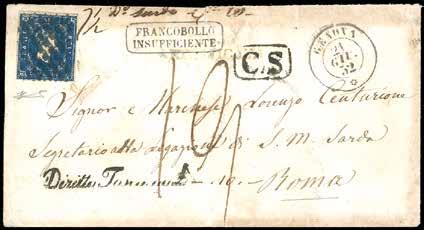 1/2
FRANCOBOLLO
INSUFFICIENTE
C.S
GENOVA
21
GIU.
52
19
Signor Marchese Lorenzo Centurione
Segretario alla Legazione di S. M. Sarda
Diritto
10
Roma